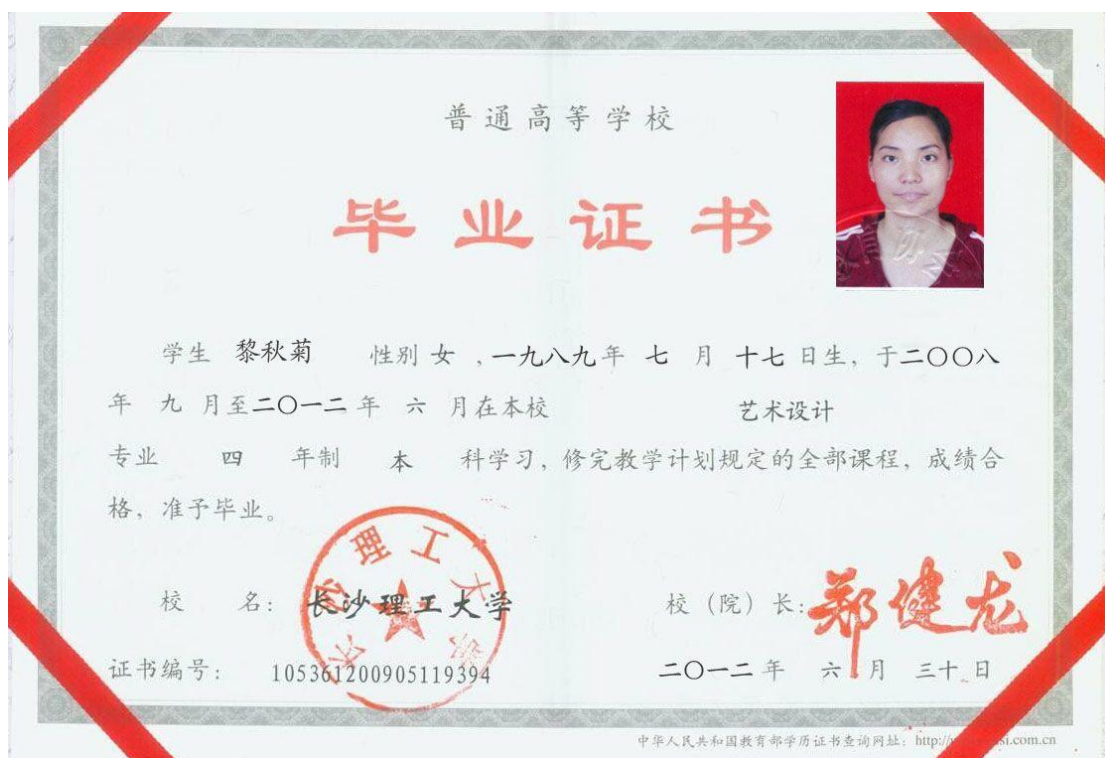 普通高等学校
毕业证书
学生 黎秋菊 性别 女 , 一九八九年 七 月 十七 日生, 于二〇〇八
年 九 月至二〇一二 年 六 月在本校 艺术设计
专业 四 年制 本 科学习, 修完教学计划规定的全部课程, 成绩合
格、准予毕业。
长沙理工大学
校 名: 长沙理工大学 校(院)长: 郑健龙
证书编号: 105361200905119394 二〇一二 年 六 月 三十 日
中华人民共和国教育部学历证书查询网址: http://
si.com.cn